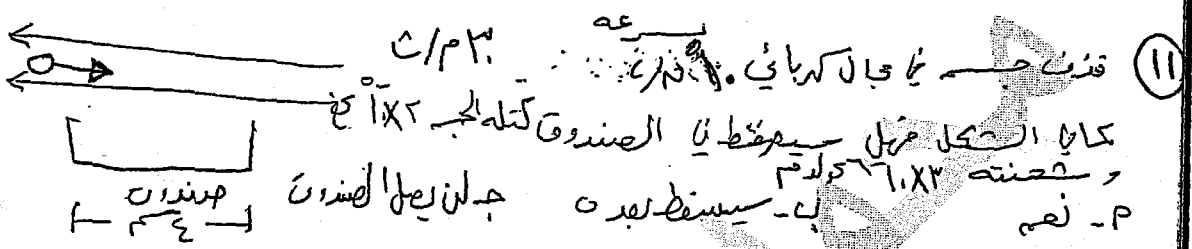 ١١ قذف جسم في مجال كهربائي ١٠ بسرعة ٣٠ م/ث
كما في الشكل فهل سيسقط في الصندوق كتلة الجسم ٢×١٠ كغ
و شحنته ٣×١٠ كولوم
م- نعم ب- سيسقط بعده ج- لن يصل الصندوق
صندوق
٤ سم